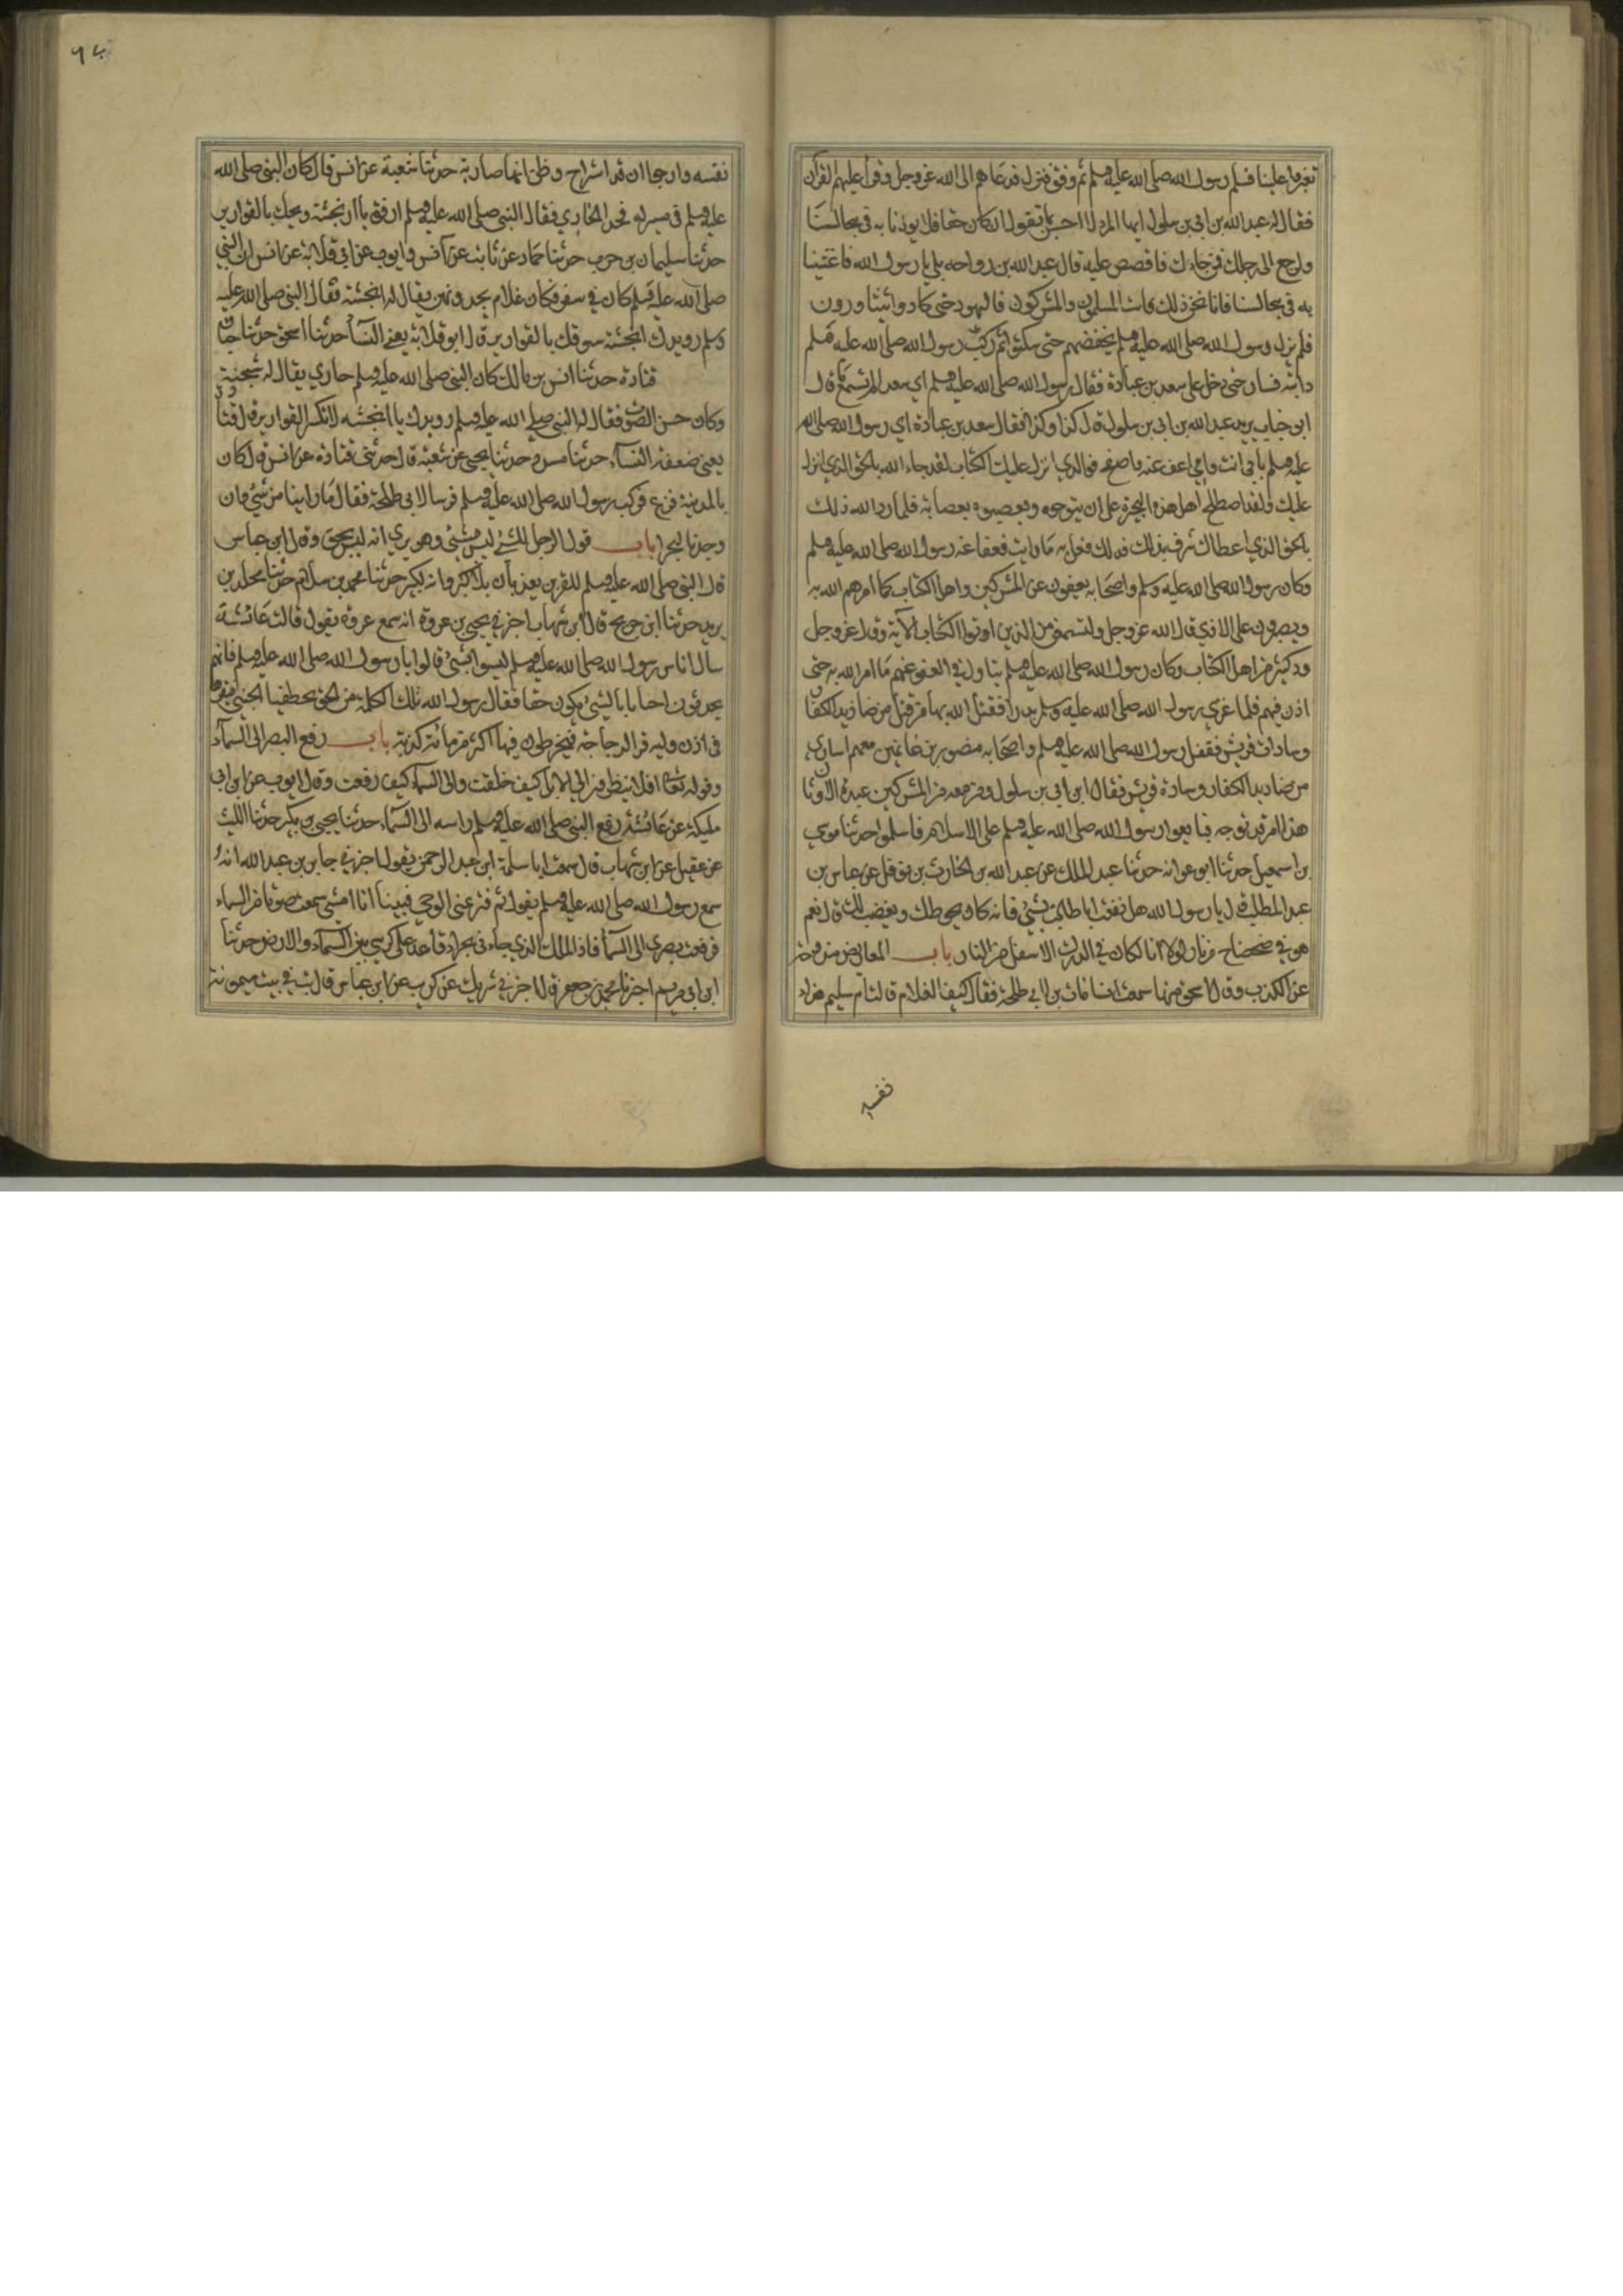 تغبروا علينا فسلم رسول الله صلى الله عليه وسلم ثم وقف فنزل فدعاهم الى الله عز وجل وقرأ عليهم القرآن
فقال له عبد الله بن ابي بن سلول ايها المرء لا احسن مما تقول ان كان حقا فلا يوذنا به في مجالسنا
وارجع الى رحلك فمن جاءك فاقصص عليه قال عبد الله بن رواحه بلى يا رسول الله فاغشنا
به في مجالسنا فانا نحب ذلك فاستب المسلمون والمشركون واليهود حتى كادوا يتثاورون
فلم يزل رسول الله صلى الله عليه وسلم يخفضهم حتى سكتوا ثم ركب رسول الله صلى الله عليه وسلم
دابته فسار حتى دخل على سعد بن عبادة فقال رسول الله صلى الله عليه وسلم اي سعد الم تسمع ما قال
ابو حباب يريد عبد الله بن ابي بن سلول قال كذا وكذا فقال سعد بن عبادة اي رسول الله صلى الله
عليه وسلم بابي انت وامي اعف عنه واصفح فوالذي انزل عليك الكتاب لقد جاء الله بالحق الذي انزل
عليك ولقد اصطلح اهل هذه البحيرة على ان يتوجوه ويعصبوه بعصابة فلما رد الله ذلك
بالحق الذي اعطاك شرق بذلك فذلك فعل به ما رايت فعفا عنه رسول الله صلى الله عليه وسلم
وكان رسول الله صلى الله عليه وسلم واصحابه يعفون عن المشركين واهل الكتاب كما امرهم الله به
ويصبرون على الاذي قال الله عز وجل ولتسمعن من الذين اوتوا الكتاب الآية وقال عز وجل
ود كثير من اهل الكتاب وكان رسول الله صلى الله عليه وسلم يتاول في العفو عنهم ما امر الله به حتى
اذن فيهم فلما غزي رسول الله صلى الله عليه وسلم بدرا فقتل الله بها من قتل من صناديد الكفار
وسادات قريش فقفل رسول الله صلى الله عليه وسلم واصحابه منصورين غانمين معهم اسارى
من صناديد الكفار وسادة قريش فقال ابن ابي بن سلول ومن معه من المشركين عبدة الاوثان
هذا امر قد توجه فبايعوا رسول الله صلى الله عليه وسلم على الاسلام فاسلموا حدثنا موسى
بن اسمعيل حدثنا ابو عوانه حدثنا عبد الملك عن عبد الله بن الحارث بن نوفل عن عباس بن
عبد المطلب قال يا رسول الله هل نفعت ابا طالب بشئ فانه كان يحوطك ويغضب لك قال نعم
هو في ضحضاح من نار لولا انا لكان في الدرك الاسفل من النار باب المعاريض مندوحة
عن الكذب وقال اسحق سمعت انسا مات بن لابي طلحة فقال كيف الغلام قالت ام سليم هداء
نفسه
٩٤
نفسه وارجوا ان قد استراح وظن انها صادقة حدثنا شعبة عن انس قال كان النبي صلى الله
عليه وسلم في مسير له فحدا الحادي فقال النبي صلى الله عليه وسلم ارفق يا انجشة ويحك بالقوارير
حدثنا سليمان بن حرب حدثنا حماد عن ثابت عن انس وايوب عن ابي قلابة عن انس ان النبي
صلى الله عليه وسلم كان في سفر وكان غلام يحدو بهن يقال له انجشة فقال النبي صلى الله عليه
وسلم رويدك انجشة سوقك بالقوارير قال ابو قلابة يعني النسآ حدثنا اسحق حدثنا حبان
قتادة حدثنا انس بن مالك كان النبي صلى الله عليه وسلم حادي يقال له انجشة
وكان حسن الصوت فقال له النبي صلى الله عليه وسلم رويدك يا انجشه لا تكسر القوارير قال قتادة
يعني ضعفة النسآء حدثنا مسدد حدثنا يحيى عن شعبة قال حدثني قتادة عن انس قال كان
بالمدينة فزع فركب رسول الله صلى الله عليه وسلم فرسا لابي طلحة فقال ما راينا من شئ وان
وجدناه لبحرا باب قول الرجل للشئ ليس بشئ وهو يري انه ليس بحق وقال ابن عباس
قال النبي صلى الله عليه وسلم للقبرين يعذبان بلا كبير وانه لكبير حدثنا محمد بن سلام حدثنا مخلد بن
يزيد حدثنا ابن جريج قال ابن شهاب اخبرني يحيى بن عروة انه سمع عروة يقول قالت عائشة
سال اناس رسول الله صلى الله عليه وسلم ليسوا بشئ قالوا يا رسول الله صلى الله عليه وسلم فانهم
يحدثون احيانا بالشئ يكون حقا فقال رسول الله تلك الكلمة من الحق يخطفها الجني فيقرها
في اذن وليه قر الدجاجة فيخلطون فيها اكثر من مائة كذبة باب رفع البصر الى السمآء
وقوله تعالى افلا ينظرون الى الابل كيف خلقت والى السمآء كيف رفعت وقال ايوب عن ابن ابي
مليكة عن عائشة رفع النبي صلى الله عليه وسلم راسه الى السمآء حدثنا يحيى بن بكير حدثنا الليث
عن عقيل عن ابن شهاب قال سمعت ابا سلمة ابن عبد الرحمن يقول اخبرني جابر بن عبد الله انه
سمع رسول الله صلى الله عليه وسلم يقول ثم فتر عني الوحي فبينا انا امشي سمعت صوتا من السماء
فرفعت بصري الى السمآ فاذا الملك الذي جاءني بحراء قاعد على كرسي بين السمآء والارض حدثنا
ابن ابي مريم اخبرنا محمد بن جعفر قال اخبرني شريك عن كريب عن ابن عباس قال بت في بيت ميمونة